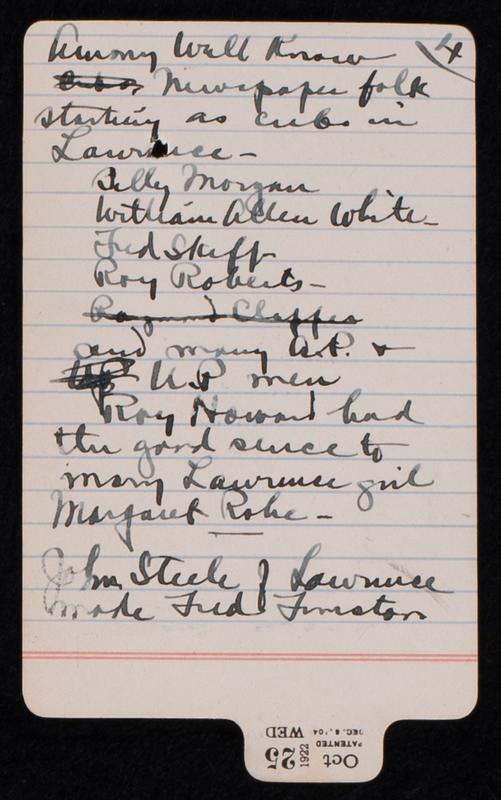 4
Among Well Known
Newspaper folk
starting as cubs in
Lawrence –
Billy Morgan
William Allen White –
Fred Skiff
Roy Roberts –
Raymond Clapper
and many A.P. &
U.P men
Roy Howard had
the good sence to
marry Lawrence girl
Margaret Rohe –
John Steele of Lawrence
made Fred Funston
Oct
25
1922
WED
PATENTED
DEC. 6, '04